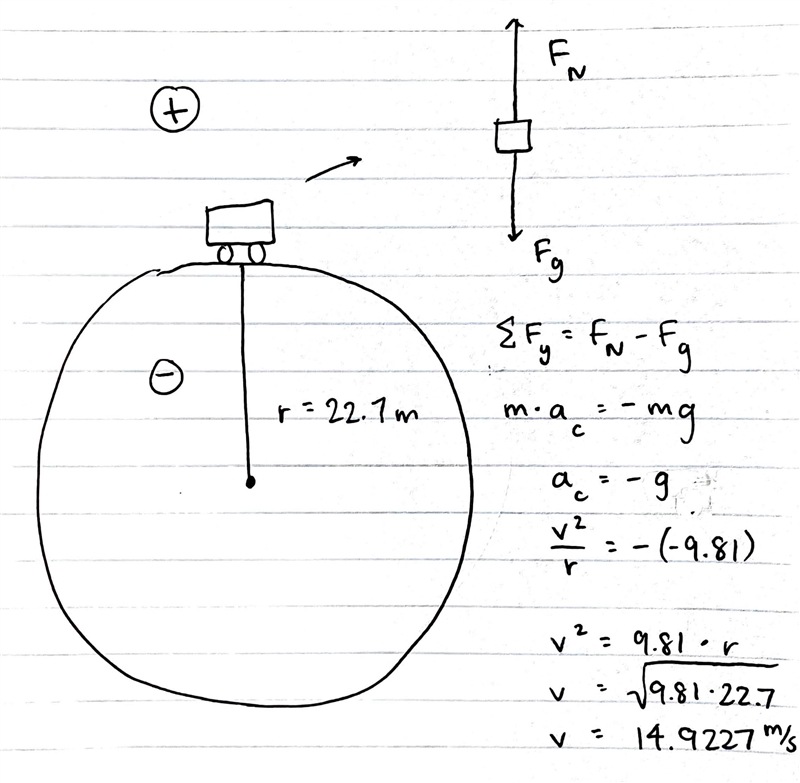 +
F_N
F_g
−
r = 22.7m
ΣF_y = F_N - F_g
m·a_c = -mg
a_c = -g
v²/r = -(-9.81)
v² = 9.81·r
v = √9.81·22.7
v = 14.9227 m/s